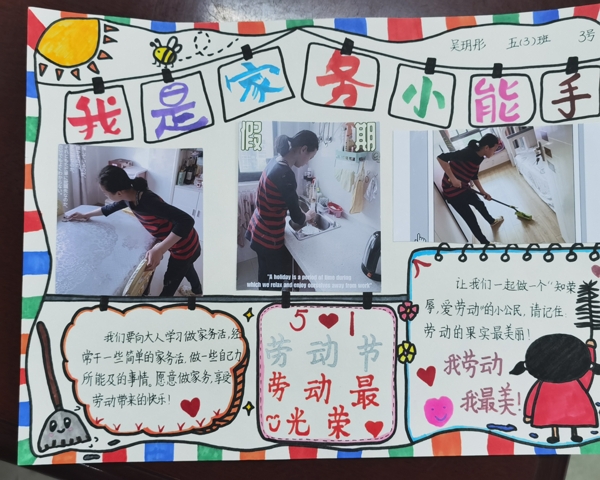 吴玥彤 五(3)班 3号
我是家务小能手
假期
"A holiday is a period of time during
which we relax and enjoy ourselves away from work"
我们要向大人学习做家务活,经
常干一些简单的家务活,做一些自己力
所能及的事情。愿意做家务,享受
劳动带来的快乐!
5 1
劳动节
劳动最
光荣
让我们一起做一个"知荣
辱,爱劳动"的小公民,请记住
劳动的果实最美丽!
我劳动
我最美!